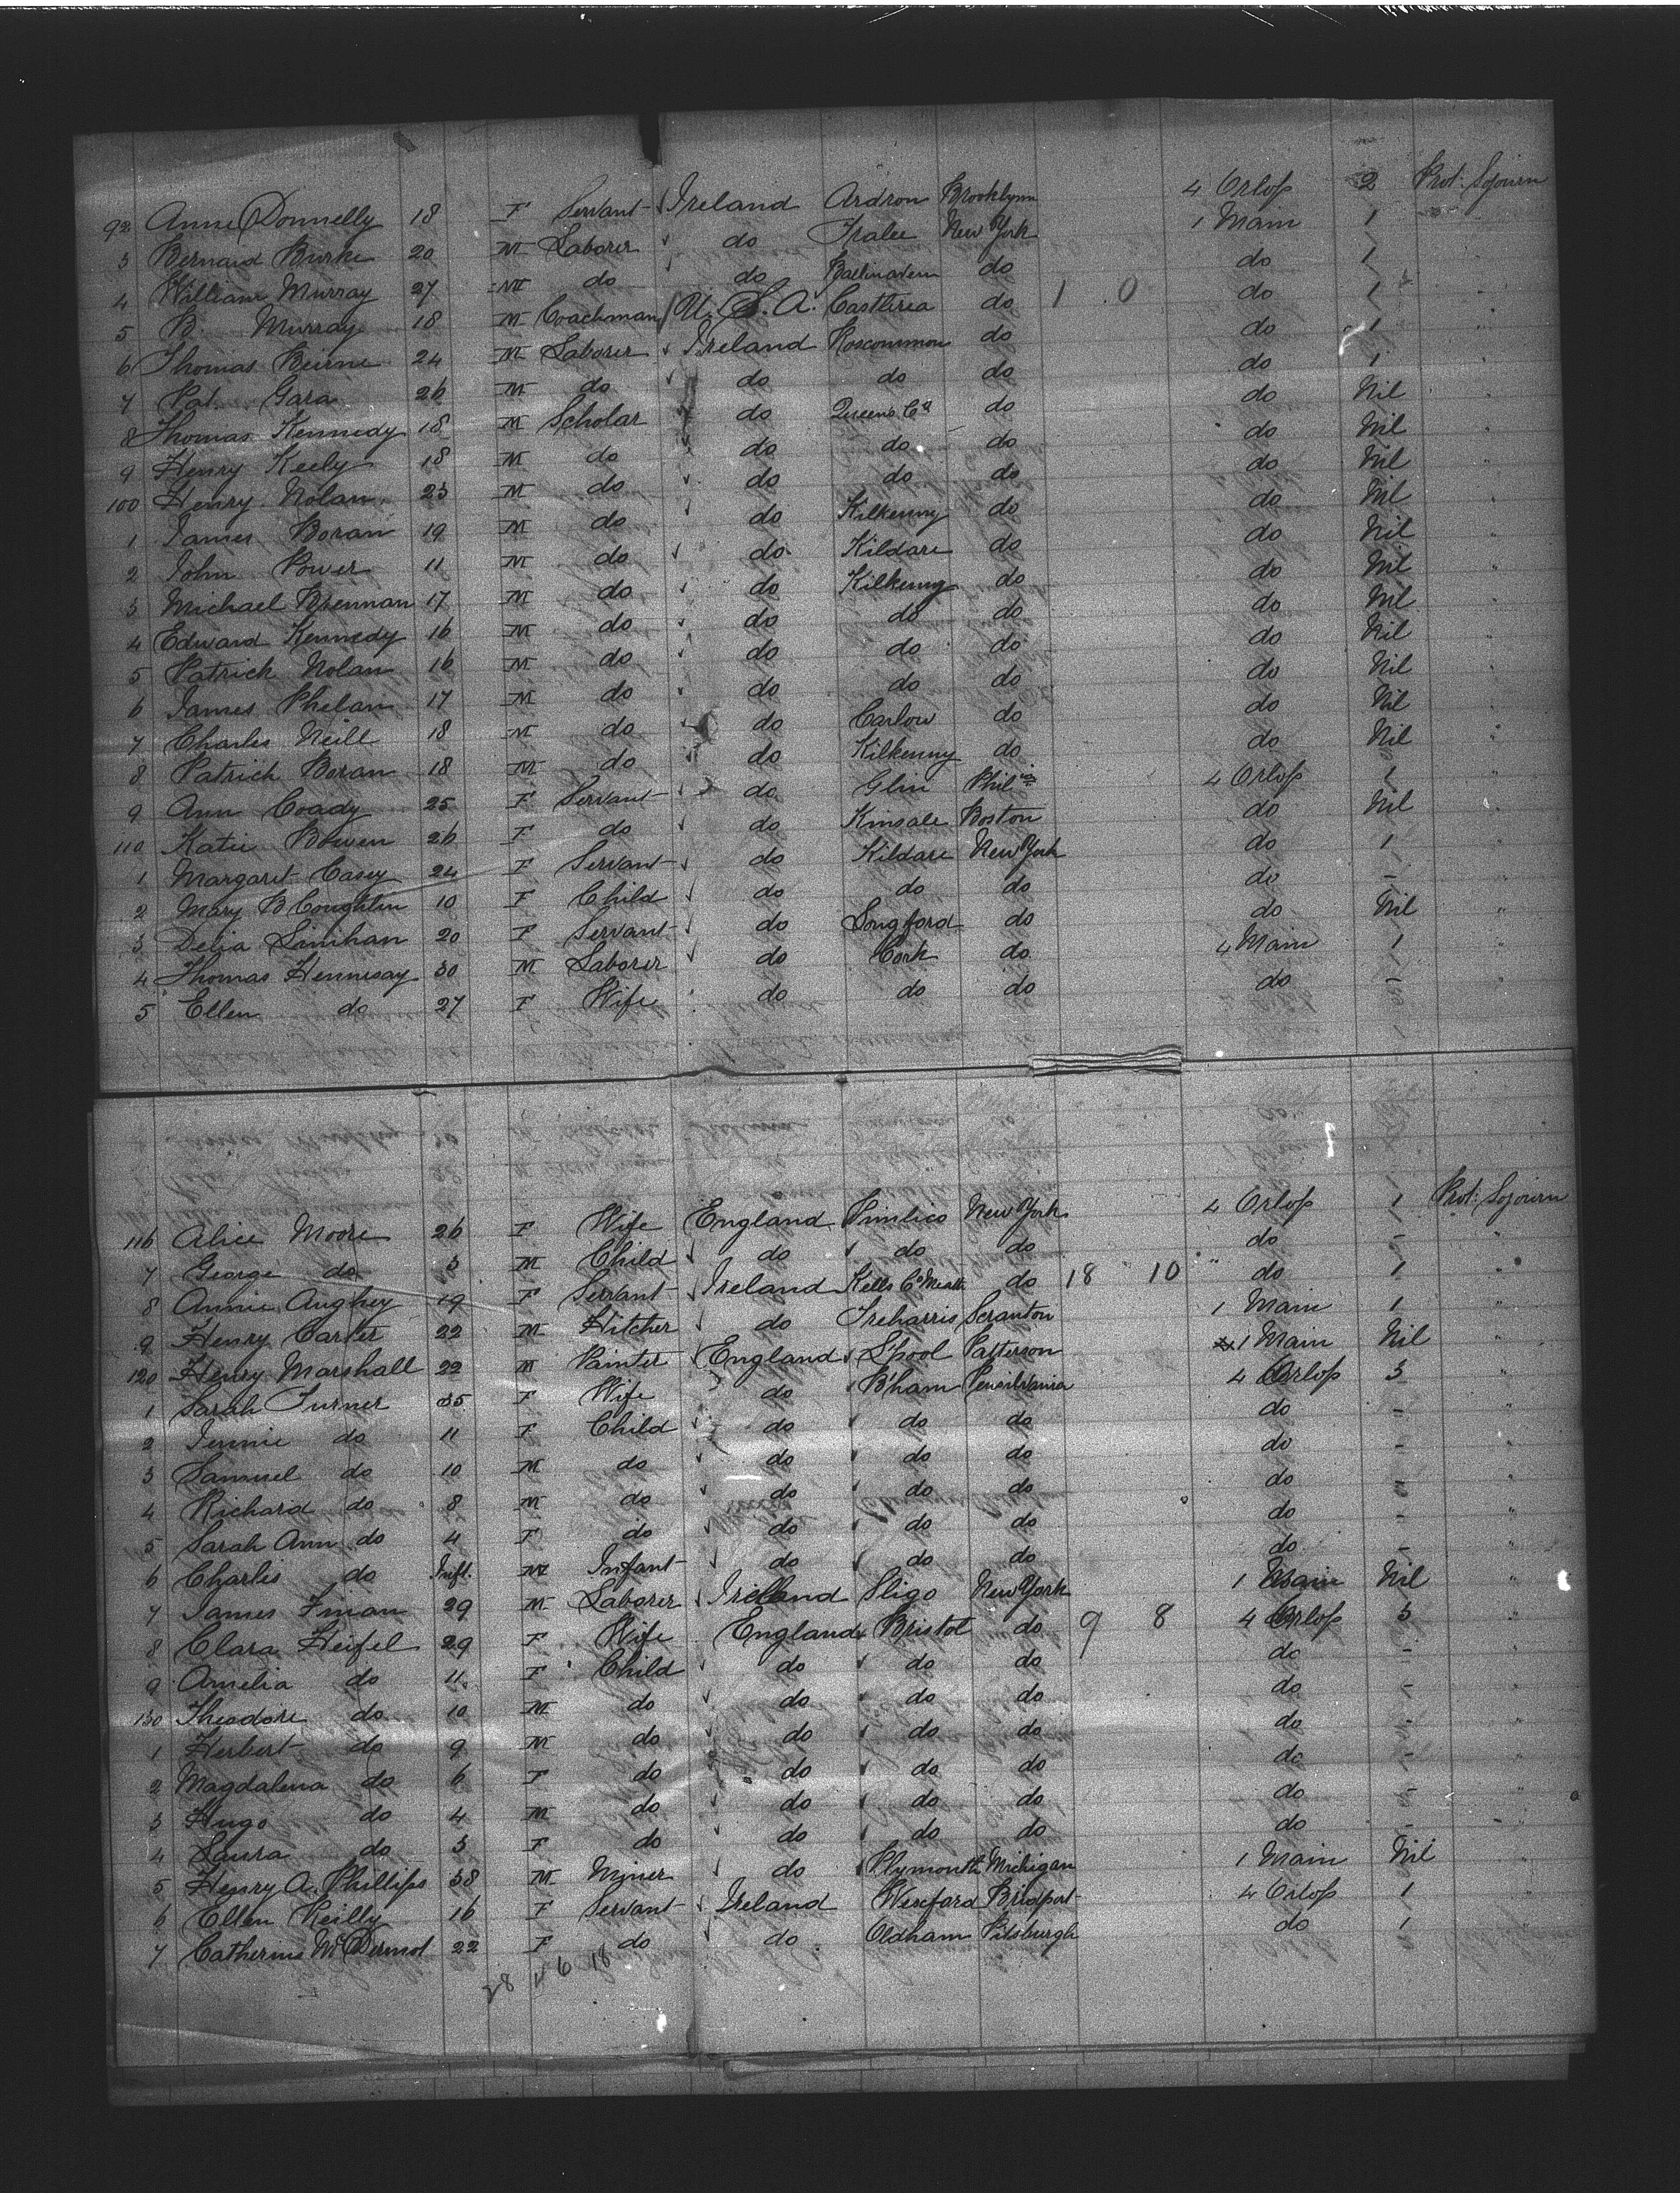 92 Anne Donnelly 18 F Servant Ireland Ardron Brooklynn 4 Orlop 2 Prot: Sojourn
3 Bernard Burke 20 M Laborer do Tralee New York 1 Main 1
4 William Murray 27 M do do do do 1
5 B. Murray 18 M Coachman U. S. A. Castlerea do 1 0 do 1
6 Thomas Beirne 24 M Laborer Ireland Roscommon do do 1
7 Pat Gara 26 M do do do do do 1
8 Thomas Kennedy 18 M Scholar do Queens Co do do Nil
9 Henry Keely 18 M do do do do do Nil
100 Henry Nolan 23 M do do do do do Nil
1 James Boran 19 M do do Kilkenny do do Nil
2 John Power 11 M do do Kildare do do Nil
3 Michael Brennan 17 M do do Kilkenny do do Nil
4 Edward Kennedy 16 M do do do do do Nil
5 Patrick Nolan 16 M do do do do do Nil
6 James Phelan 17 M do do do do do Nil
7 Charles Neill 18 M do do Carlow do do Nil
8 Patrick Boran 18 M do do Kilkenny do do Nil
9 Ann Coady 25 F Servant do Glin Phil 4 Orlop 1
110 Katie Bowen 26 F do do Kinsale Boston do Nil
1 Margaret Casey 24 F Servant do Kildare New York do 1
2 Mary B Coughlin 10 F Child do do do do -
3 Delia Linihan 20 F Servant do Longford do do Nil
4 Thomas Hennesay 30 M Laborer do Cork do 4 Main 1
5 Ellen do 27 F Wife do do do do -
116 Alice Moore 26 F Wife England Pimlico New York 4 Orlop 1 Prot: Sojourn
7 George do 3 M Child do do do do -
8 Annie Aughey 19 F Servant Ireland Kells Co Meath do 18 10 do 1
9 Henry Carter 22 M Hitcher do Treharris Scranton 1 Main 1
120 Henry Marshall 22 M Painter England L'pool Patterson 1 Main Nil
1 Sarah Turner 35 F Wife do B'ham Pensilvania 4 Orlop 3
2 Jennie do 11 F Child do do do do -
3 Samuel do 10 M do do do do do -
4 Richard do 8 M do do do do do -
5 Sarah Ann do 4 F do do do do do -
6 Charles do Inft. M Infant do do do do -
7 James Finan 29 M Laborer Ireland Sligo New York 1 Main Nil
8 Clara Heifel 29 F Wife England Bristol do 9 8 4 Orlop 3
9 Amelia do 11 F Child do do do do -
130 Theodore do 10 M do do do do do -
1 Herbert do 9 M do do do do do -
2 Magdalena do 6 F do do do do do -
3 Hugo do 4 M do do do do do -
4 Laura do 3 F do do do do do -
5 Henry A. Phillips 38 M Miner do Plymouth Michigan 1 Main Nil
6 Ellen Reilly 16 F Servant Ireland Wexford Bridport 4 Orlop 1
7 Catherine McDermot 22 F do do Oldham Pitsburgh do 1
28 4 6 18